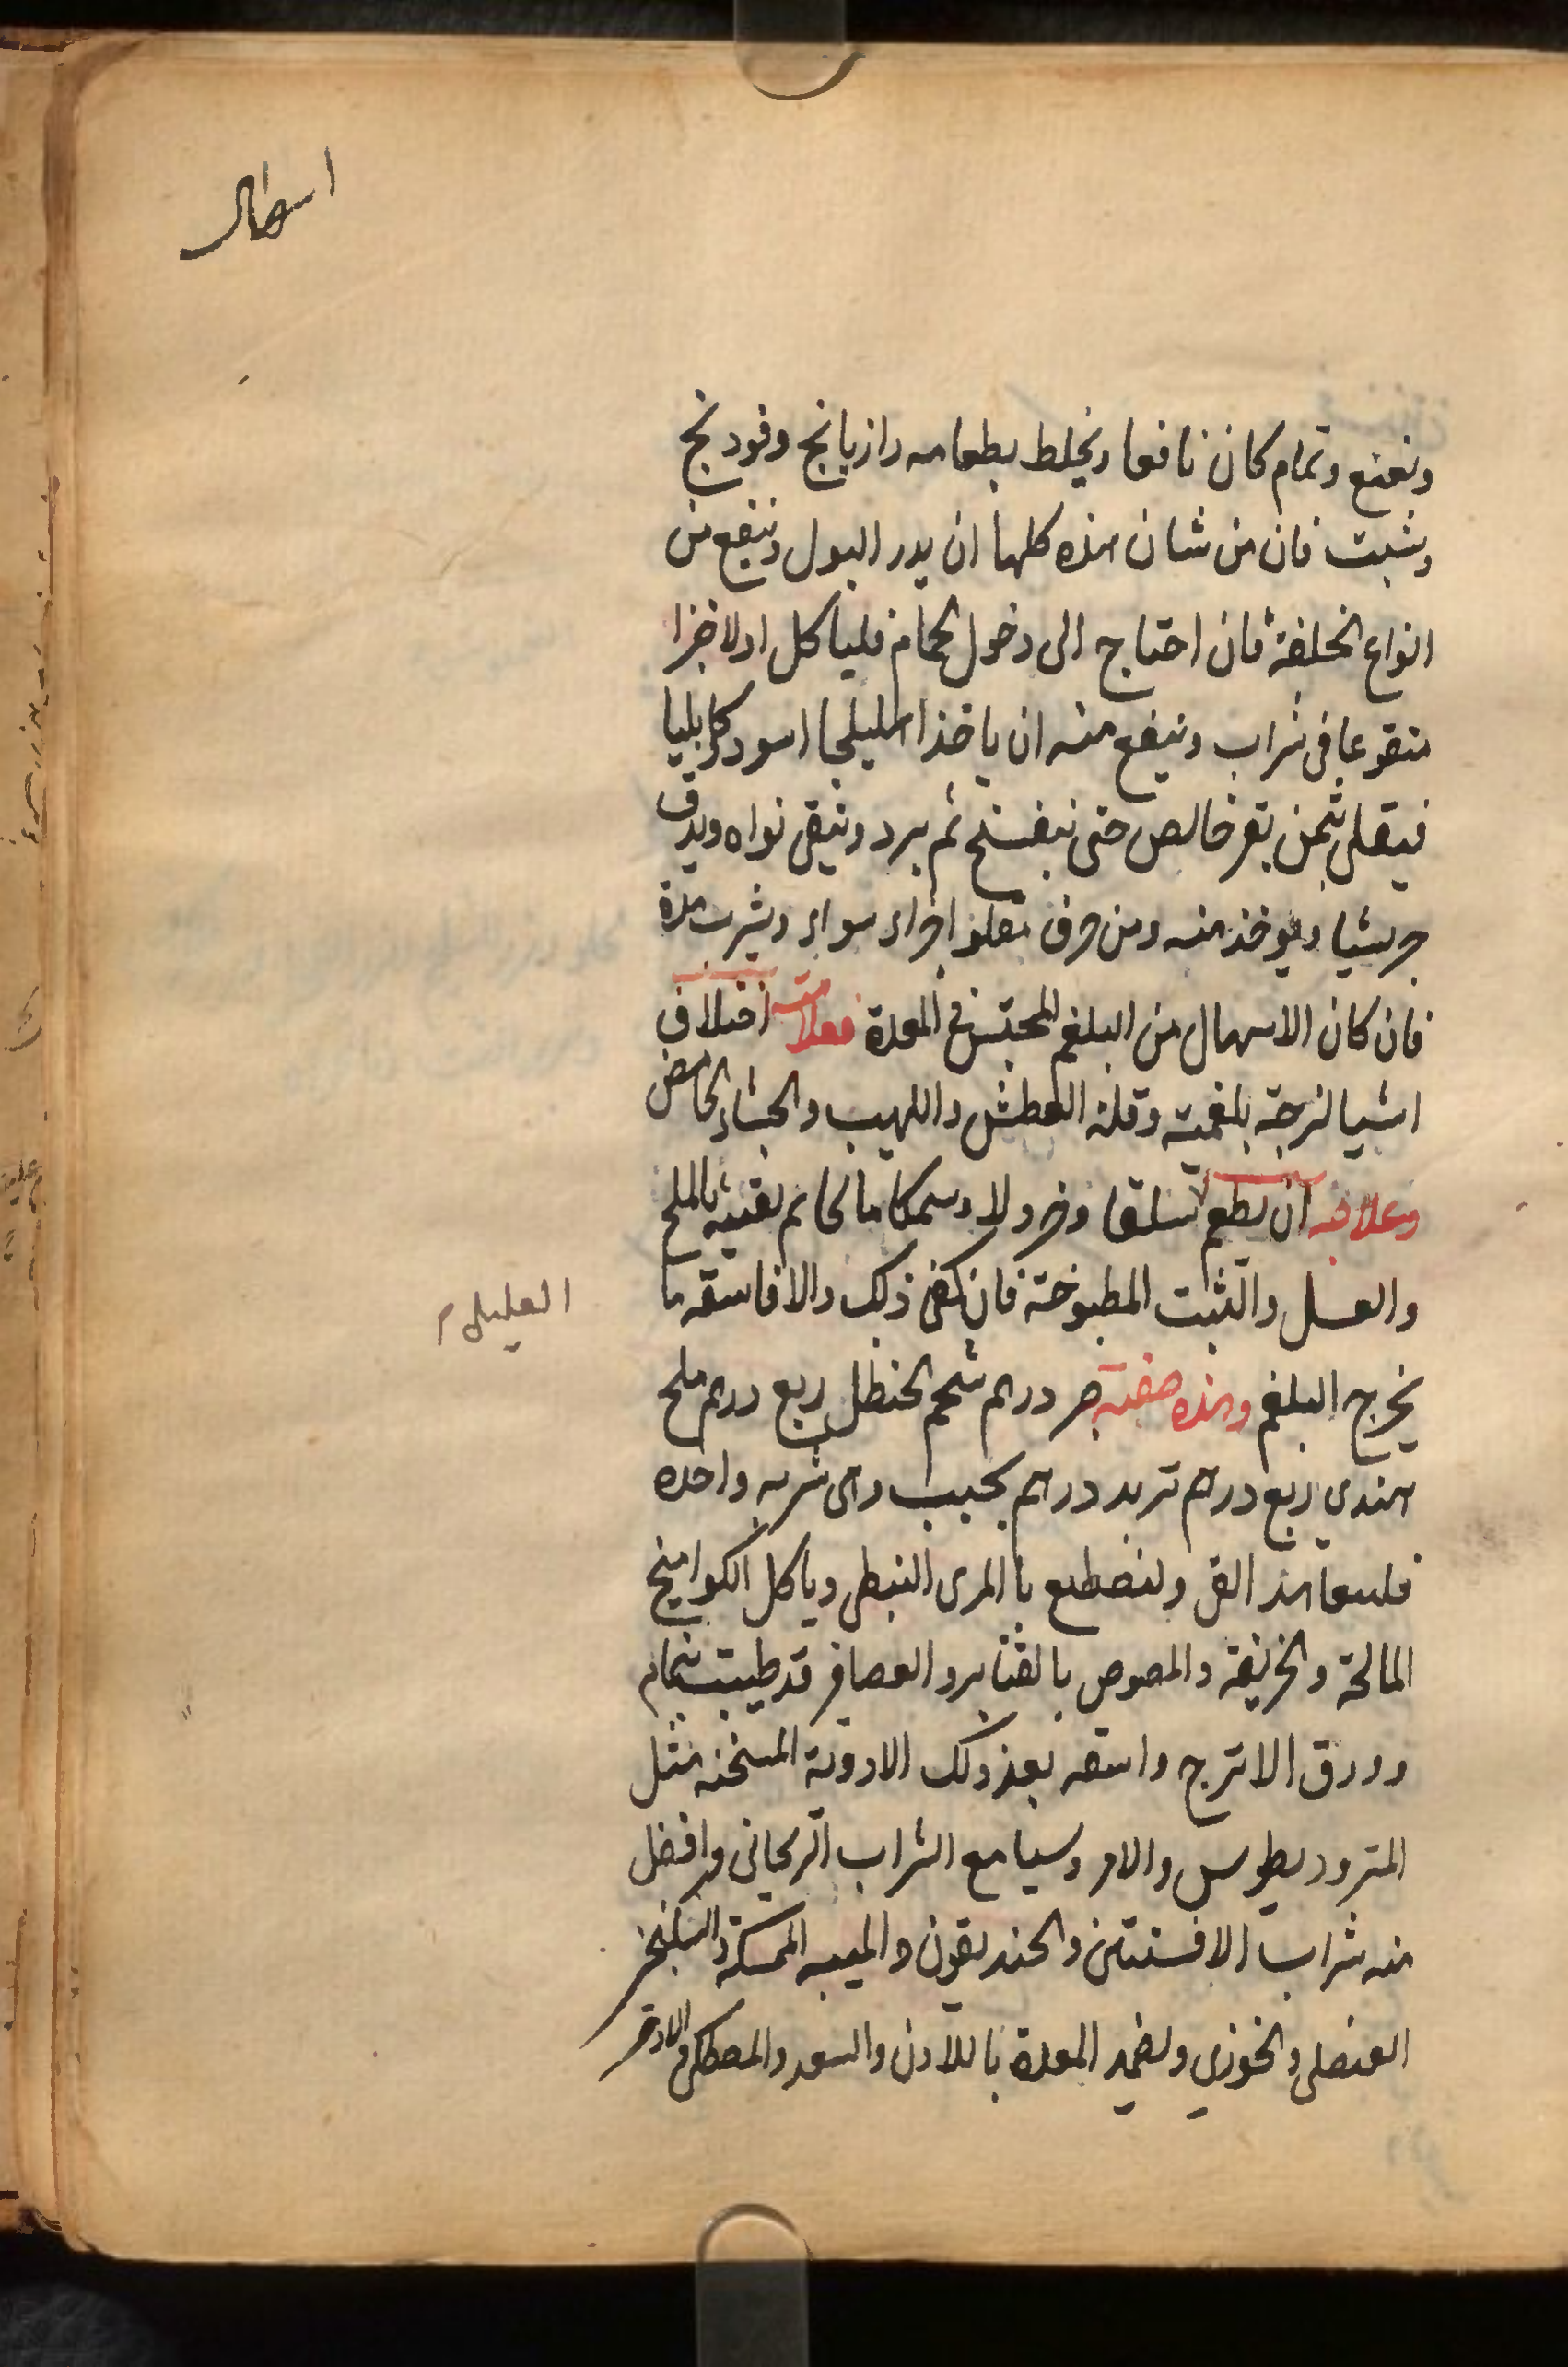 اسهال
ونعنع ونمام كان نافعا ويخلط بطعامه رازيانج وفودنج
وشبت فان من شان هذه كلها ان يدر البول وينفع من
انواع الخلفة فان احتاج الى دخول الحمام فلياكل اولا خبزا
منقوعا فى شراب وينفع منه ان ياخذ اهليلجا اسود كابليا
فيقلى بسمن بقر خالص حتى ينفسخ ثم يبرد وينقى نواه ويدق
جريشا ويوخذ منه ومن حرف مقلو اجزاء سواء ويشرب منه
فان كان الاسهال من البلغم المحتبس فى المعدة فعلامته اختلاف
اشيا لزجة بلغمية وقلة العطش واللهيب والجشاء الحامض
وعلاجه ان يطعم سلقا وخردلا وسمكا مالحا ثم يقيئه بالملح
والعسل والشبت المطبوخة فان كفى ذلك والا فاسقه ما
العليل
يخرج البلغم وهذه صفته صبر درهم شحم الحنظل ربع درهم ملح
هندي ربع درهم تربد درهم يحبب وهى شربه واحده
هذا القى وليصطبغ بالمرى النبطى وياكل الكواميخ
المالحة والحريفة والمصوص بالقنابر والعصافر قد طيبت بنمام
وورق الاترج واسقه بعد ذلك الادوية المسخنه مثل
المثروديطوس والامروسيا مع الشراب الريحانى وافضل
منه شراب الافسنتين والخنديقون والميبه الممسكة والسكنجبين
العنصلى والخوزي وليضمد المعدة باللادن والسعد والمصطكى والاذخر